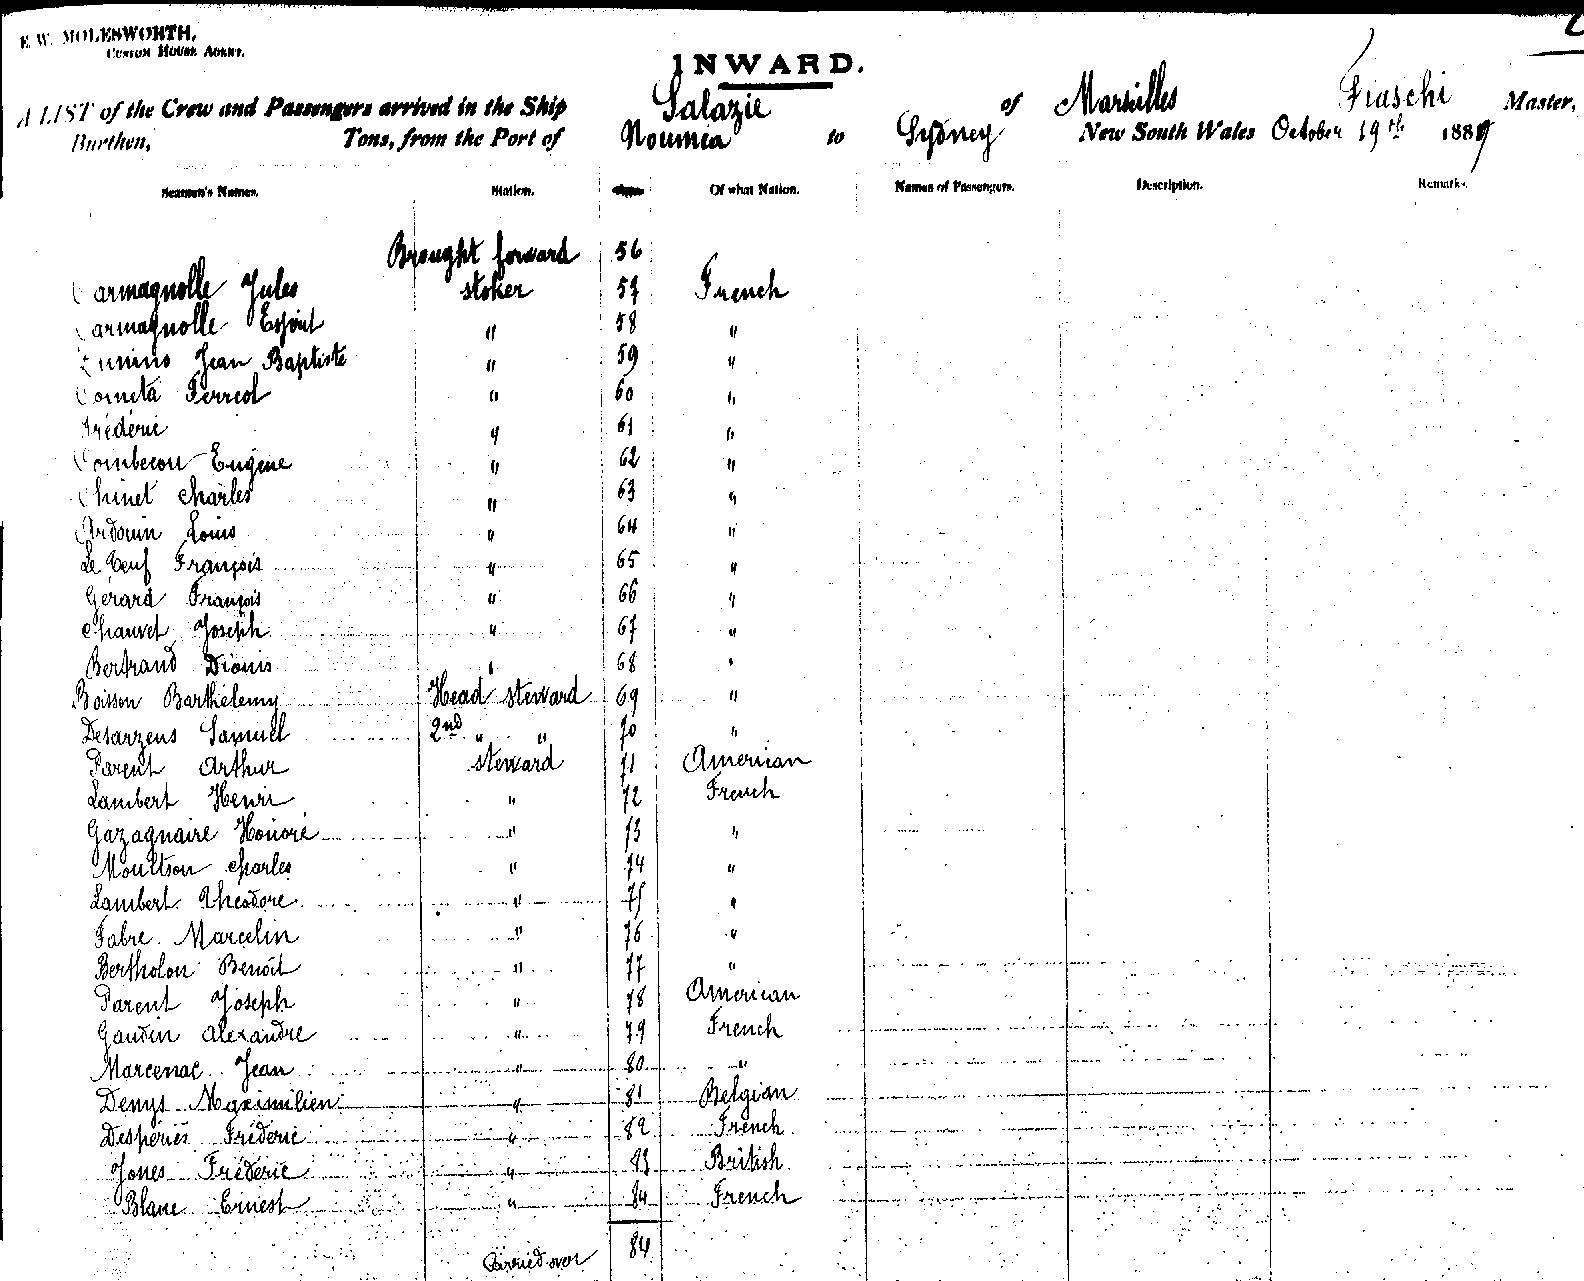 E. W. MOLESWORTH,
CUSTOM HOUSE AGENT.
INWARD.
A LIST of the Crew and Passengers arrived in the Ship Salazie of Marseilles Fiaschi Master,
Burthen, Tons, from the Port of Noumea to Sydney New South Wales October 19th 1889
Seamen's Names. Station. Of what Nation. Names of Passengers. Description. Remarks.
Brought forward 56
Carmagnolle Jules stoker 57 French
Carmagnolle Esprit " 58 "
Zunino Jean Baptiste " 59 "
Cometa Ferreol " 60 "
Frédéric " 61 "
Combecou Eugène " 62 "
Chinet Charles " 63 "
Ardouin Louis " 64 "
Le Beuf François " 65 "
Gérard François " 66 "
Chauvet Joseph " 67 "
Bertrand Dionis " 68 "
Boisson Barthélemy Head steward 69 "
Desarzens Samuel 2nd " " 70 "
Parent Arthur steward 71 American
Lambert Henri " 72 French
Gazagnaire Honoré " 73 "
Moultson Charles " 74 "
Lambert Theodore " 75 "
Fabre Marcelin " 76 "
Bertholon Benoît " 77 "
Parent Joseph " 78 American
Gaudin Alexandre " 79 French
Marcenac Jean " 80 "
Denys Maximilien " 81 Belgian
Desperiés Fréderic " 82 French
Jones Fréderic " 83 British
Blanc Ernest " 84 French
Carried over 84